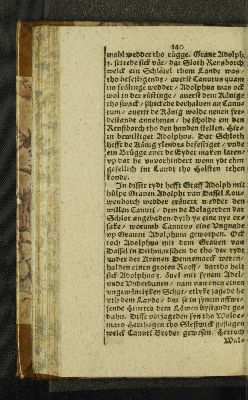 140
wahl wedder tho rügge. Graue Adolph
3. settede sick vär / dat Sloth Rensborch
welck ein Schlötel thom Lande was /
tho beseitgende / auerst Canutus quam
im frölinge wedder / Adolphus was ock
wol in der rüstinge / auerst dem Könige
tho swack / schickede derhaluen an Canu-
tum / auerst de König wolde nenen fre-
destandt annehmen / he scholde en den
Rensborch tho den handen stellen. Hire
in bewilliget Adolphus. Dat Schloth
hefft de König ylendes befestiget / vnde
ein Brügge auer de Eyder maken laten /
vp dat he vnuorhindert wenn ydt ehm
geselich int Landt tho Holsten tehen
konde.
In disser tydt hefft Graff Adolph mit
hülpe Grauen Adolph van Dassel Lou-
wenborch wedder eröuert wedder den
willen Canuti / dem de Belagerden dat
Schlot angebaden / dyth ys eine nye or-
sake / worumb Canutus eine Vngnade
vp Grauen Adolphum geworpen. Ock
toch Adolphus mit dem Grauen van
Dassel in Dithmarschen de tho der tydt
vnder der Kronen Dennemarck weren /
halden einen groten Rooff / dartho helt
sick Adolphus 3. övel mit synem Adel /
vnde Vnderdanen / nam van enen einen
vngewöntlyken Schat / etlyke jagede he
vth dem Lande / dat se in synem affwe-
sende Hinrick dem Löwen bystandt ge-
dahn. Disse vorjageden syn tho Wolde-
maro Hertogen tho Sleswick geflagen
welck Canuti Broder gewesen. Hertoch
Wol-